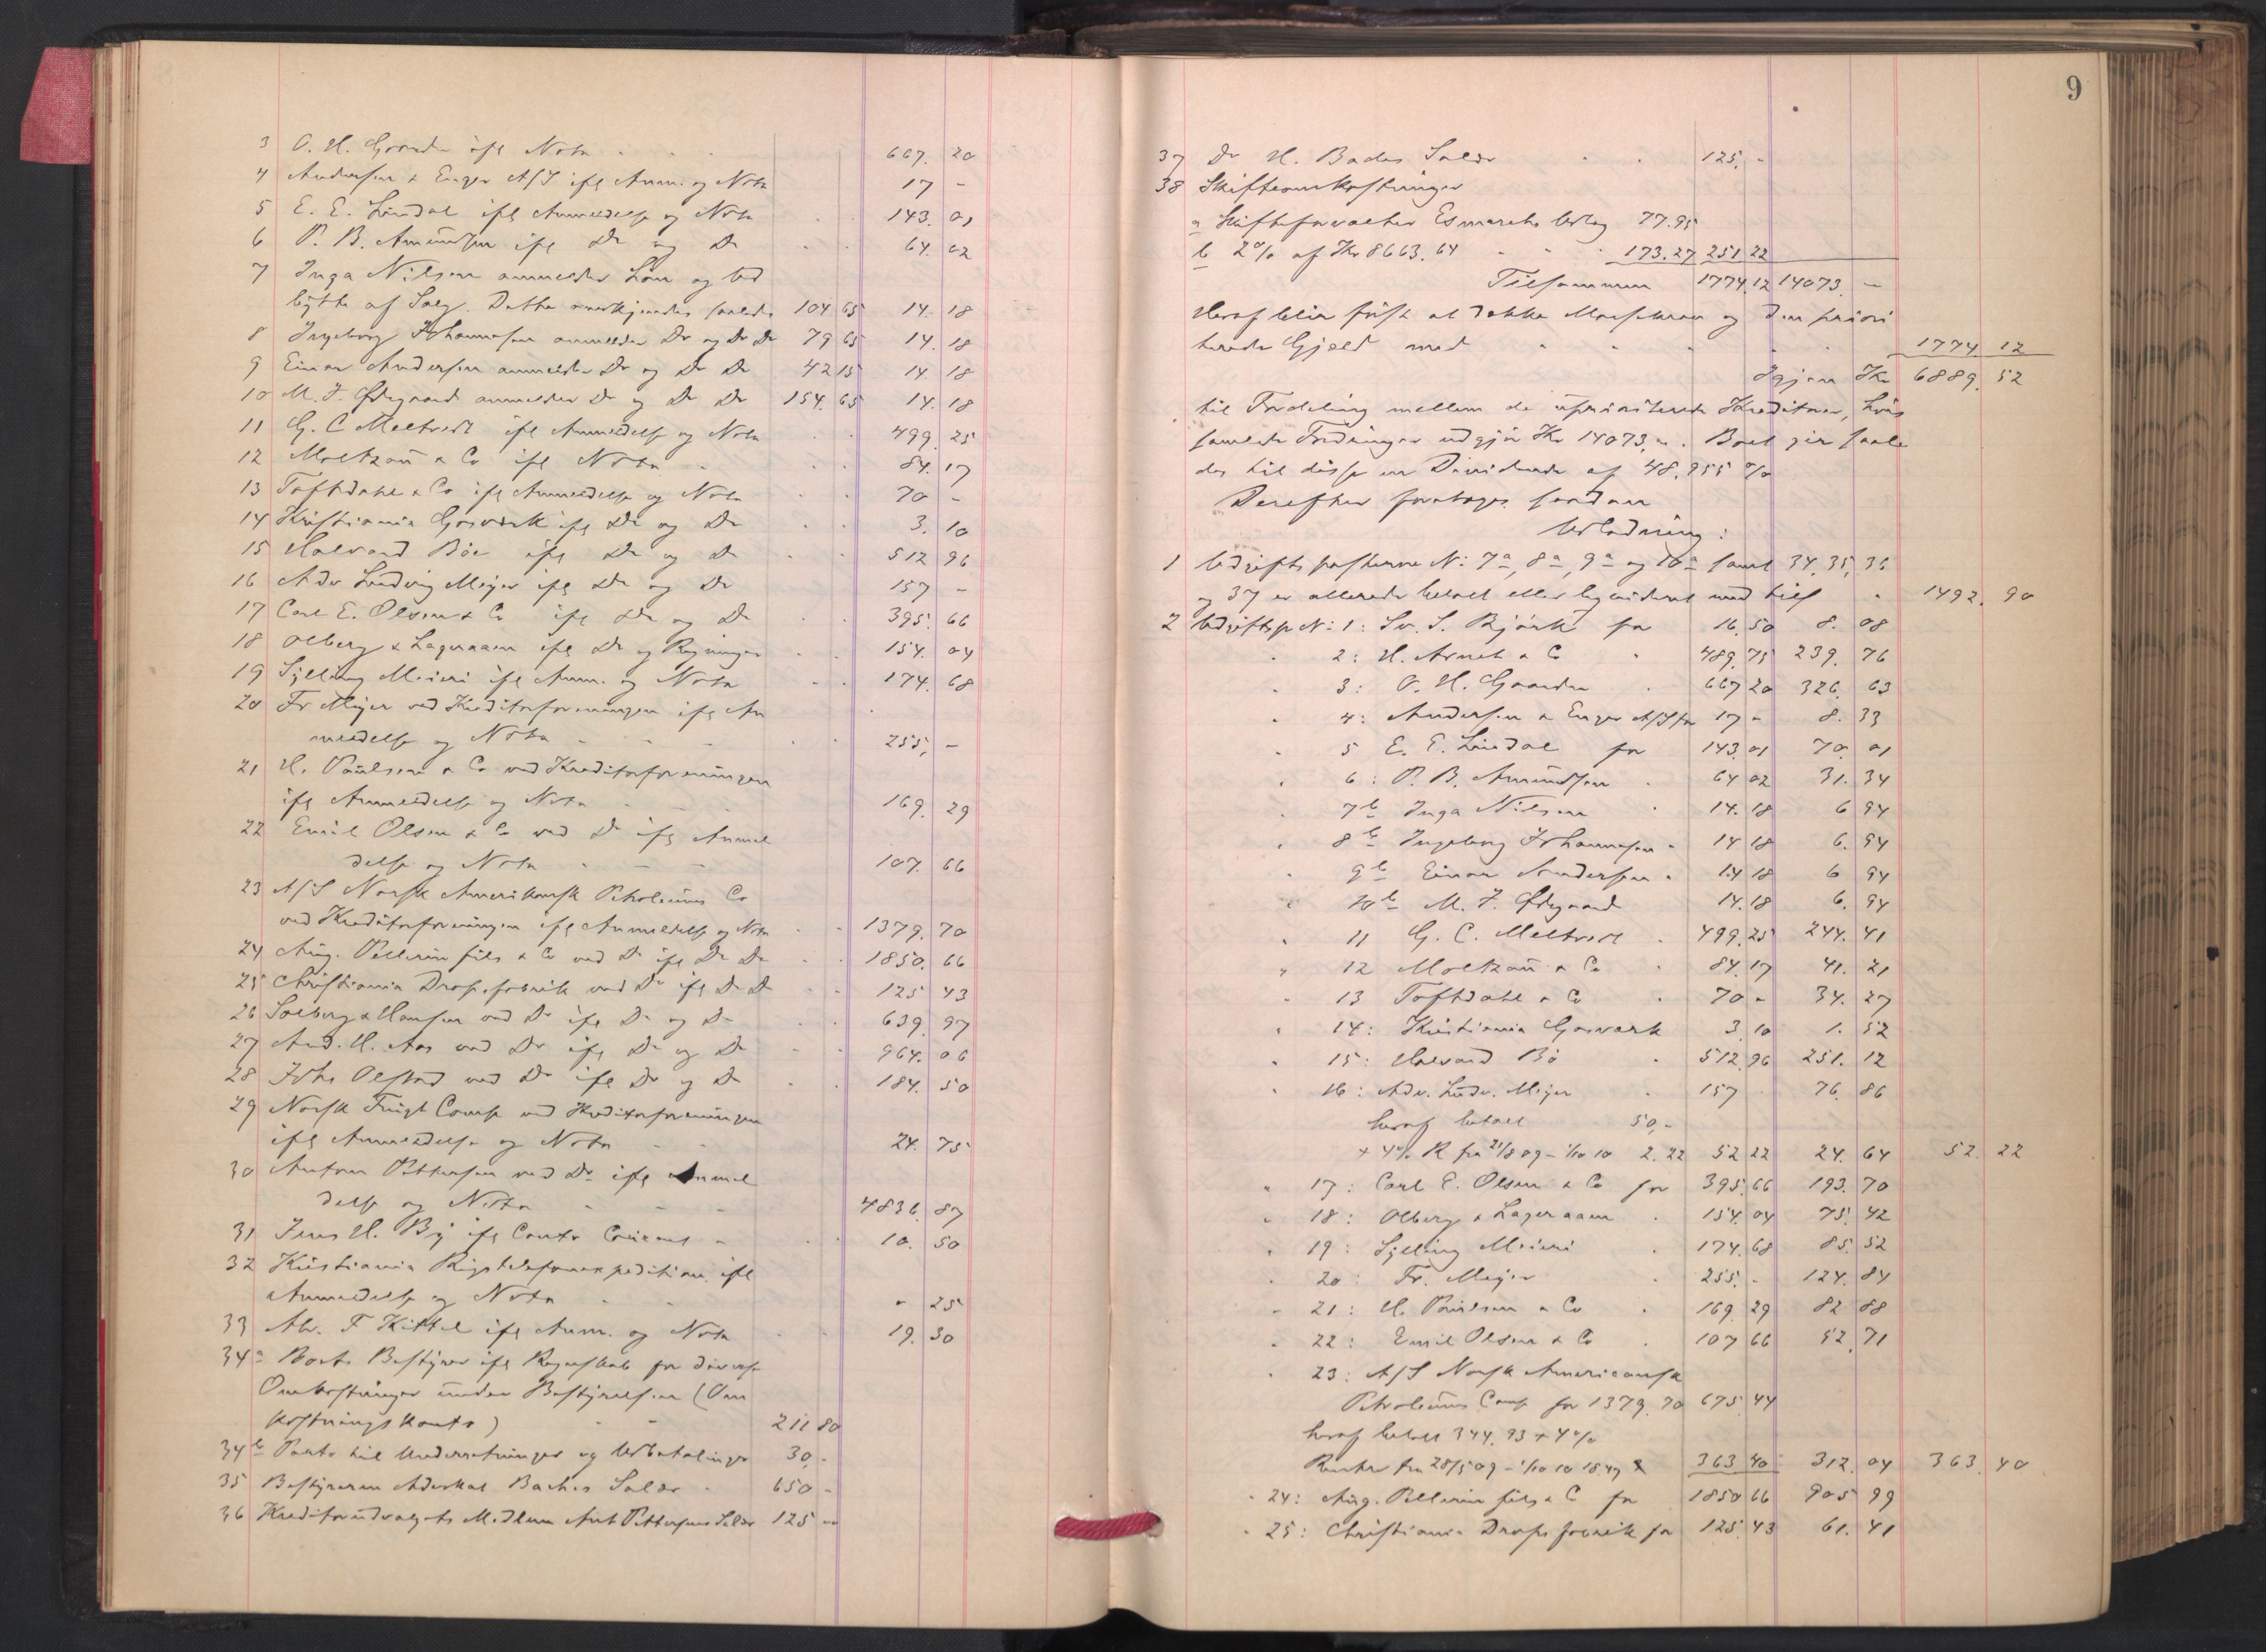 3 O. H. Gaarder ifl Nota 667. 20
4 Andersen & Enger A/S ifl Anm. og Nota 17 -
5 E. E. Lindal ifl Anmeldelse og Nota 143. 01
6 P. B. Amundsen ifl Do og Do 64. 02
7 Inga Nilsen anmelder Løn og Ud
bytte af Salg. Dette anerkjendes saaledes 104 65 14. 18
8 Ingeborg Johannesen anmelder Do og Do Do 79 65 14. 18
9 Einar Andersen anmelder Do og Do Do 42 15 14. 18
10 M. J. Ødegaard anmelder Do og Do Do 154. 65 14. 18
11 G. C Meltvedt ifl Anmeldelse og Nota 499. 25
12 Moltzau & Co ifl Nota 84. 17
13 Toftdahl & Co ifl Anmeldelse og Nota 70 -
14 Kristiania Gasværk ifl Do og Do 3. 10
15 Halvard Böe ifl Do og Do 512 96
16 Adv Ludvig Meyer ifl Do og Do 157 -
17 Carl E. Olsen & Co ifl Do og Do 395. 66
18 Olberg & Lageraaen ifl Do og Regninger 154. 04
19 Sylling Meieri ifl Anm. og Nota 174. 68
20 Fr Meyer ved Kreditorforeningen ifl An
meldelse og Nota 255, -
21 H. Paulsen & Co ved Kreditorforeningen
ifl Anmeldelse og Nota 169. 29
22 Emil Olsen & Co ved Do ifl Anmel
delse og Nota 107. 66
23 A/S Norsk Amerikansk Petroleums Co
ved Kreditorforeningen ifl Anmeldelse og Nota 1379. 70
24 Aug. Pellerin fils & Co ved Do ifl Do Do 1850. 66
25 Christiania Dropsfabrik ved Do ifl Do Do 125 43
26 Solberg & Hansen ved Do ifl Do og Do 639. 97
27 And. H. Aas ved Do ifl Do og Do 964. 06
28 Johs Olstad ved Do ifl Do og Do 184. 50
29 Norsk Frugt Comp ved Kreditorforeningen
ifl Anmeldelse og Nota 24. 75
30 Anton Pettersen ved Do ifl Anmel
delse og Nota 4836. 87
31 Jens H. By ifl Conto Courant 10. 50
32 Kristiania Rigstelefonexpedition ifl
Anmeldelse og Nota " 25
33 Alr. F Kittel ifl Anm. og Nota 19. 30
34a Boets Bestyrer ifl Regnskab for diverse
Omkostninger under Bestyrelsen (Om
kostningskonto) 211 80
34b Porto til Underretninger og Udbetalinger 30, -
35 Bestyreren Adv Baches Salær 650 -
36 Kreditorudvalgets Medlem Ant Pettersens Salær 125 -
9
37 Do H. Bades Salær 125. -
38 Skifteomkostninger
a Skifteforvalter Esmarchs Udlæg 77.95
b 2% af Kr 8663. 64 173. 27 251 22
Tilsammen 1774. 12 14073. -
Heraf blir først at dække Massekrav og den priori
terede Gjæld med 1774 12
Igjen Kr 6889. 52
til Fordeling mellem de upriorterede Kreditorer, hvis
samlede Fordringer udgjør Kr 14073,-. Boet gir saale
des til disse en Dividende af 48,955 %
Derefter foretoges saadan
Udlodning:
1 Udgiftsposterne N: 7a, 8a, 9a og 10a samt 34, 35, 36
og 37 er allerede betalt eller ligvideret med tils 1492. 90
2 Udgiftsp N: 1: Sv. S. Bjørk for 16. 50 8. 08
" 2: H. Arnet & Co " 489. 75 239. 76
" 3: O. H. Gaarder 667 20 326. 63
" 4: Andersen & Enger A/S for 17 - 8. 33
" 5 E. E. Lindal for 143. 01 70. 01
" 6: P. B. Amundsen 64 02 31. 34
" 7b Inga Nilsen 14. 18 6 94
" 8b Ingeborg Johannesen " 14 18 6. 94
" 9b Einar Andersen " 14 18 6 94
" 10b M. J. Ødegaard 14. 18 6. 94
" 11 G. C. Meltvedt 499. 25 244. 41
" 12 Moltzau & Co 84. 17 41. 21
" 13 Toftdahl & Co 70 - 34. 27
" 14: Kristiania Gasværk 3. 10 1. 52
" 15: Halvard Bö 512. 96 251. 12
" 16: Adv. Ludv. Meyer 157 76. 86
heraf betalt 50,-
+ 4% R fra 21/8 09 - 1/10 10 2. 22 52 22 24. 64 52. 22
" 17: Carl E. Olsen & Co for 395. 66 193. 70
" 18: Olberg & Lageraaen 154. 04 75. 42
" 19: Sylling Meieri 174. 68 85. 52
" 20: Fr. Meyer 255. - 124. 84
" 21: H. Paulsen & Co 169. 29 82 88
" 22: Emil Olsen & Co 107 66 52. 71
" 23: A/S Norsk Americansk
Petroleums Comp for 1379. 70 675. 44
heraf betalt 344. 93 + 4%
Renter fra 28/5 09 - 1/10 10 18 47 363 40 312. 04 363. 40
" 24: Aug. Pellerin fils & C for 1850 66 905 99
" 25: Christiania Drops fabrik for 125. 43 61. 41